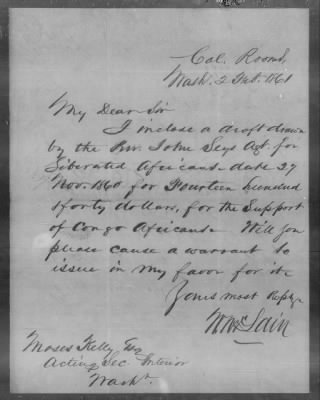 Col. Rooms,
Wash. 2 Feb. 1861
My Dear Sir
I inclose a draft drawn
by the Rev. John Seys Agt. for
Liberated Africans date 27
Nov. 1860 for Fourteen hundred
& forty dollars, for the Support
of Congo Africans. Will you
please cause a warrant to
issue in my favor for it.
Yours most Respy.
W McLain
Moses Kelly Esq
Acting Sec. Interior
Washn.